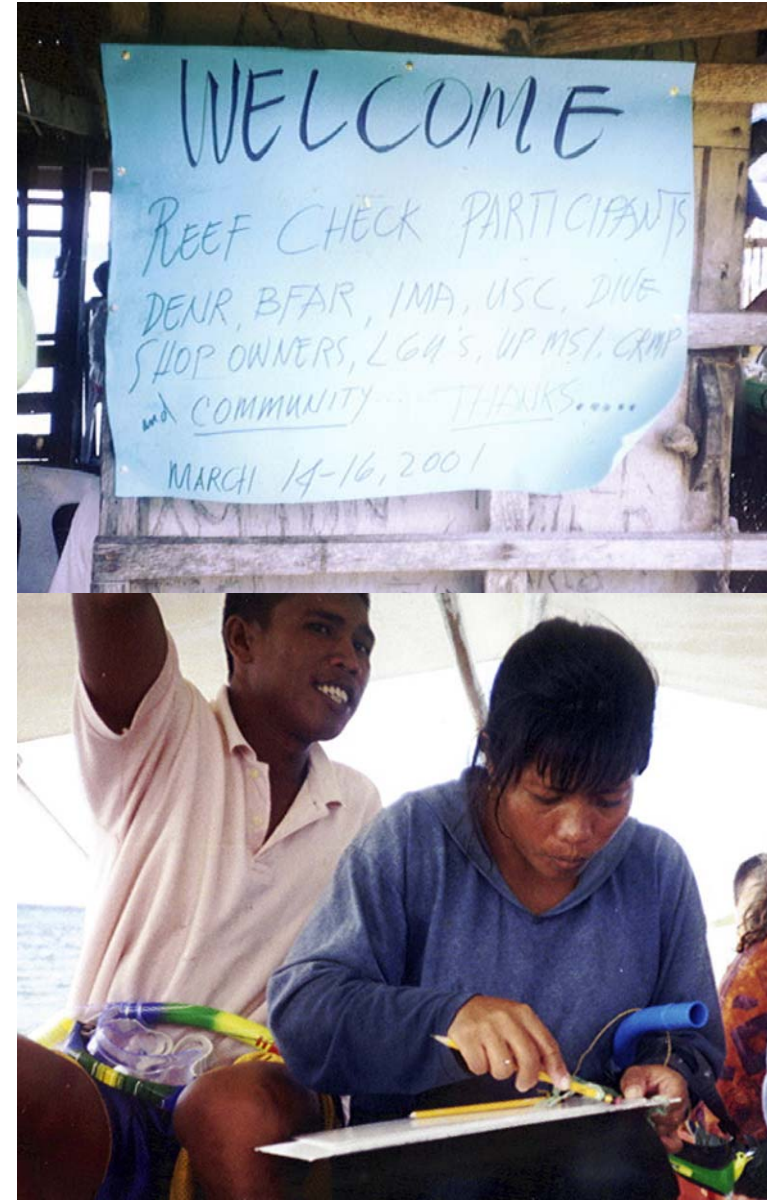 WELCOME
REEF CHECK PARTICIPANTS
DENR, BFAR, IMA, USC, DIVE
SHOP OWNERS, LGU'S, UP MSI. CRMP
and COMMUNITY THANKS.....
MARCH 14-16, 2001